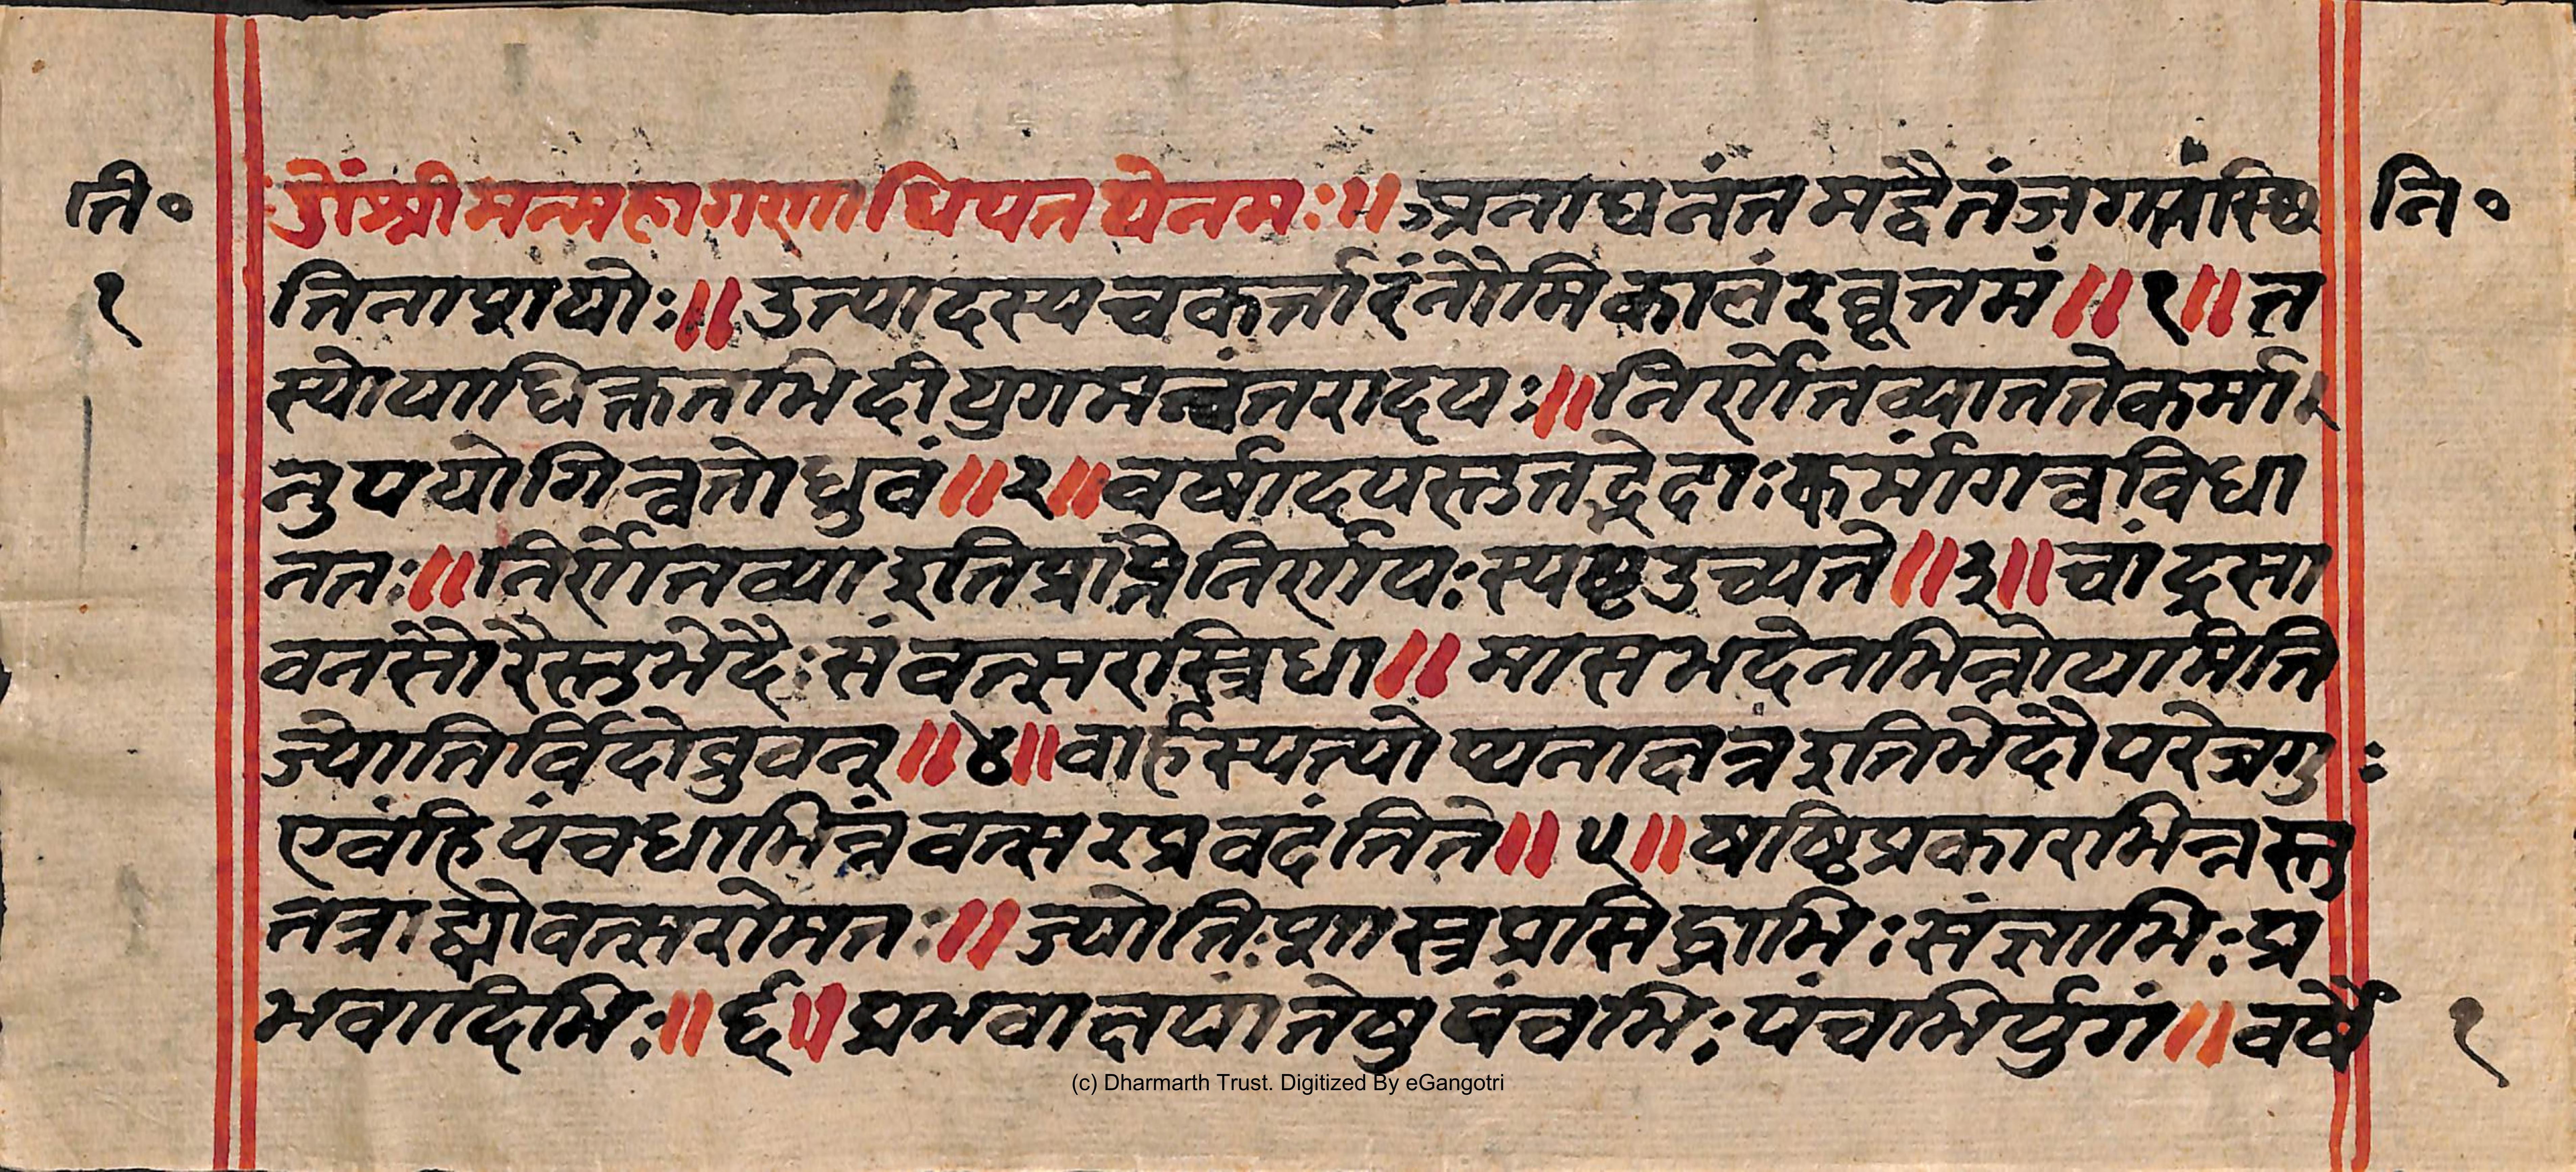 ति॰
ॐश्रीमन्महागणाधिपतयेनमः॥अनाद्यनंतमद्वैतंजगतांस्थि
ति॰
१
तिनाशयोः॥उत्पादस्यचकर्त्तारंनौमिकालंरघूत्तमं॥१॥त
स्योपाधिकृतभिदोयुगमन्वंतरादयः॥निर्णेतव्यानतेकर्मा
नुपयोगिन्वतोध्रुवं॥२॥वर्षादयस्तुतद्भेदाःकर्मांगत्वविधा
नतः॥निर्णेतव्याइतिप्राज्ञैर्निर्णयःस्पष्टउच्यते॥३॥चांद्रसा
वनसौरैस्तुभेदैःसंवत्सरस्त्रिधा॥मासभेदेनभिन्नोयामिति
ज्योतिर्विदोब्रुवन्॥४॥वार्हस्पत्योप्यनाक्षत्रइतिभेदौपरेजगुः
एवंहिपंचधाभिन्नंवत्सरप्रवदंतिते॥५॥षष्टिप्रकारभिन्नस्तु
तत्राद्योवत्सरोमतः॥ज्योतिःशास्त्रप्रसिद्धाभिःसंज्ञाभिःप्र
भवादिभिः॥६॥प्रभवाक्षयांतेषुपंचभिःपंचभिर्युगं॥वर्षै
१
(c) Dharmarth Trust. Digitized By eGangotri